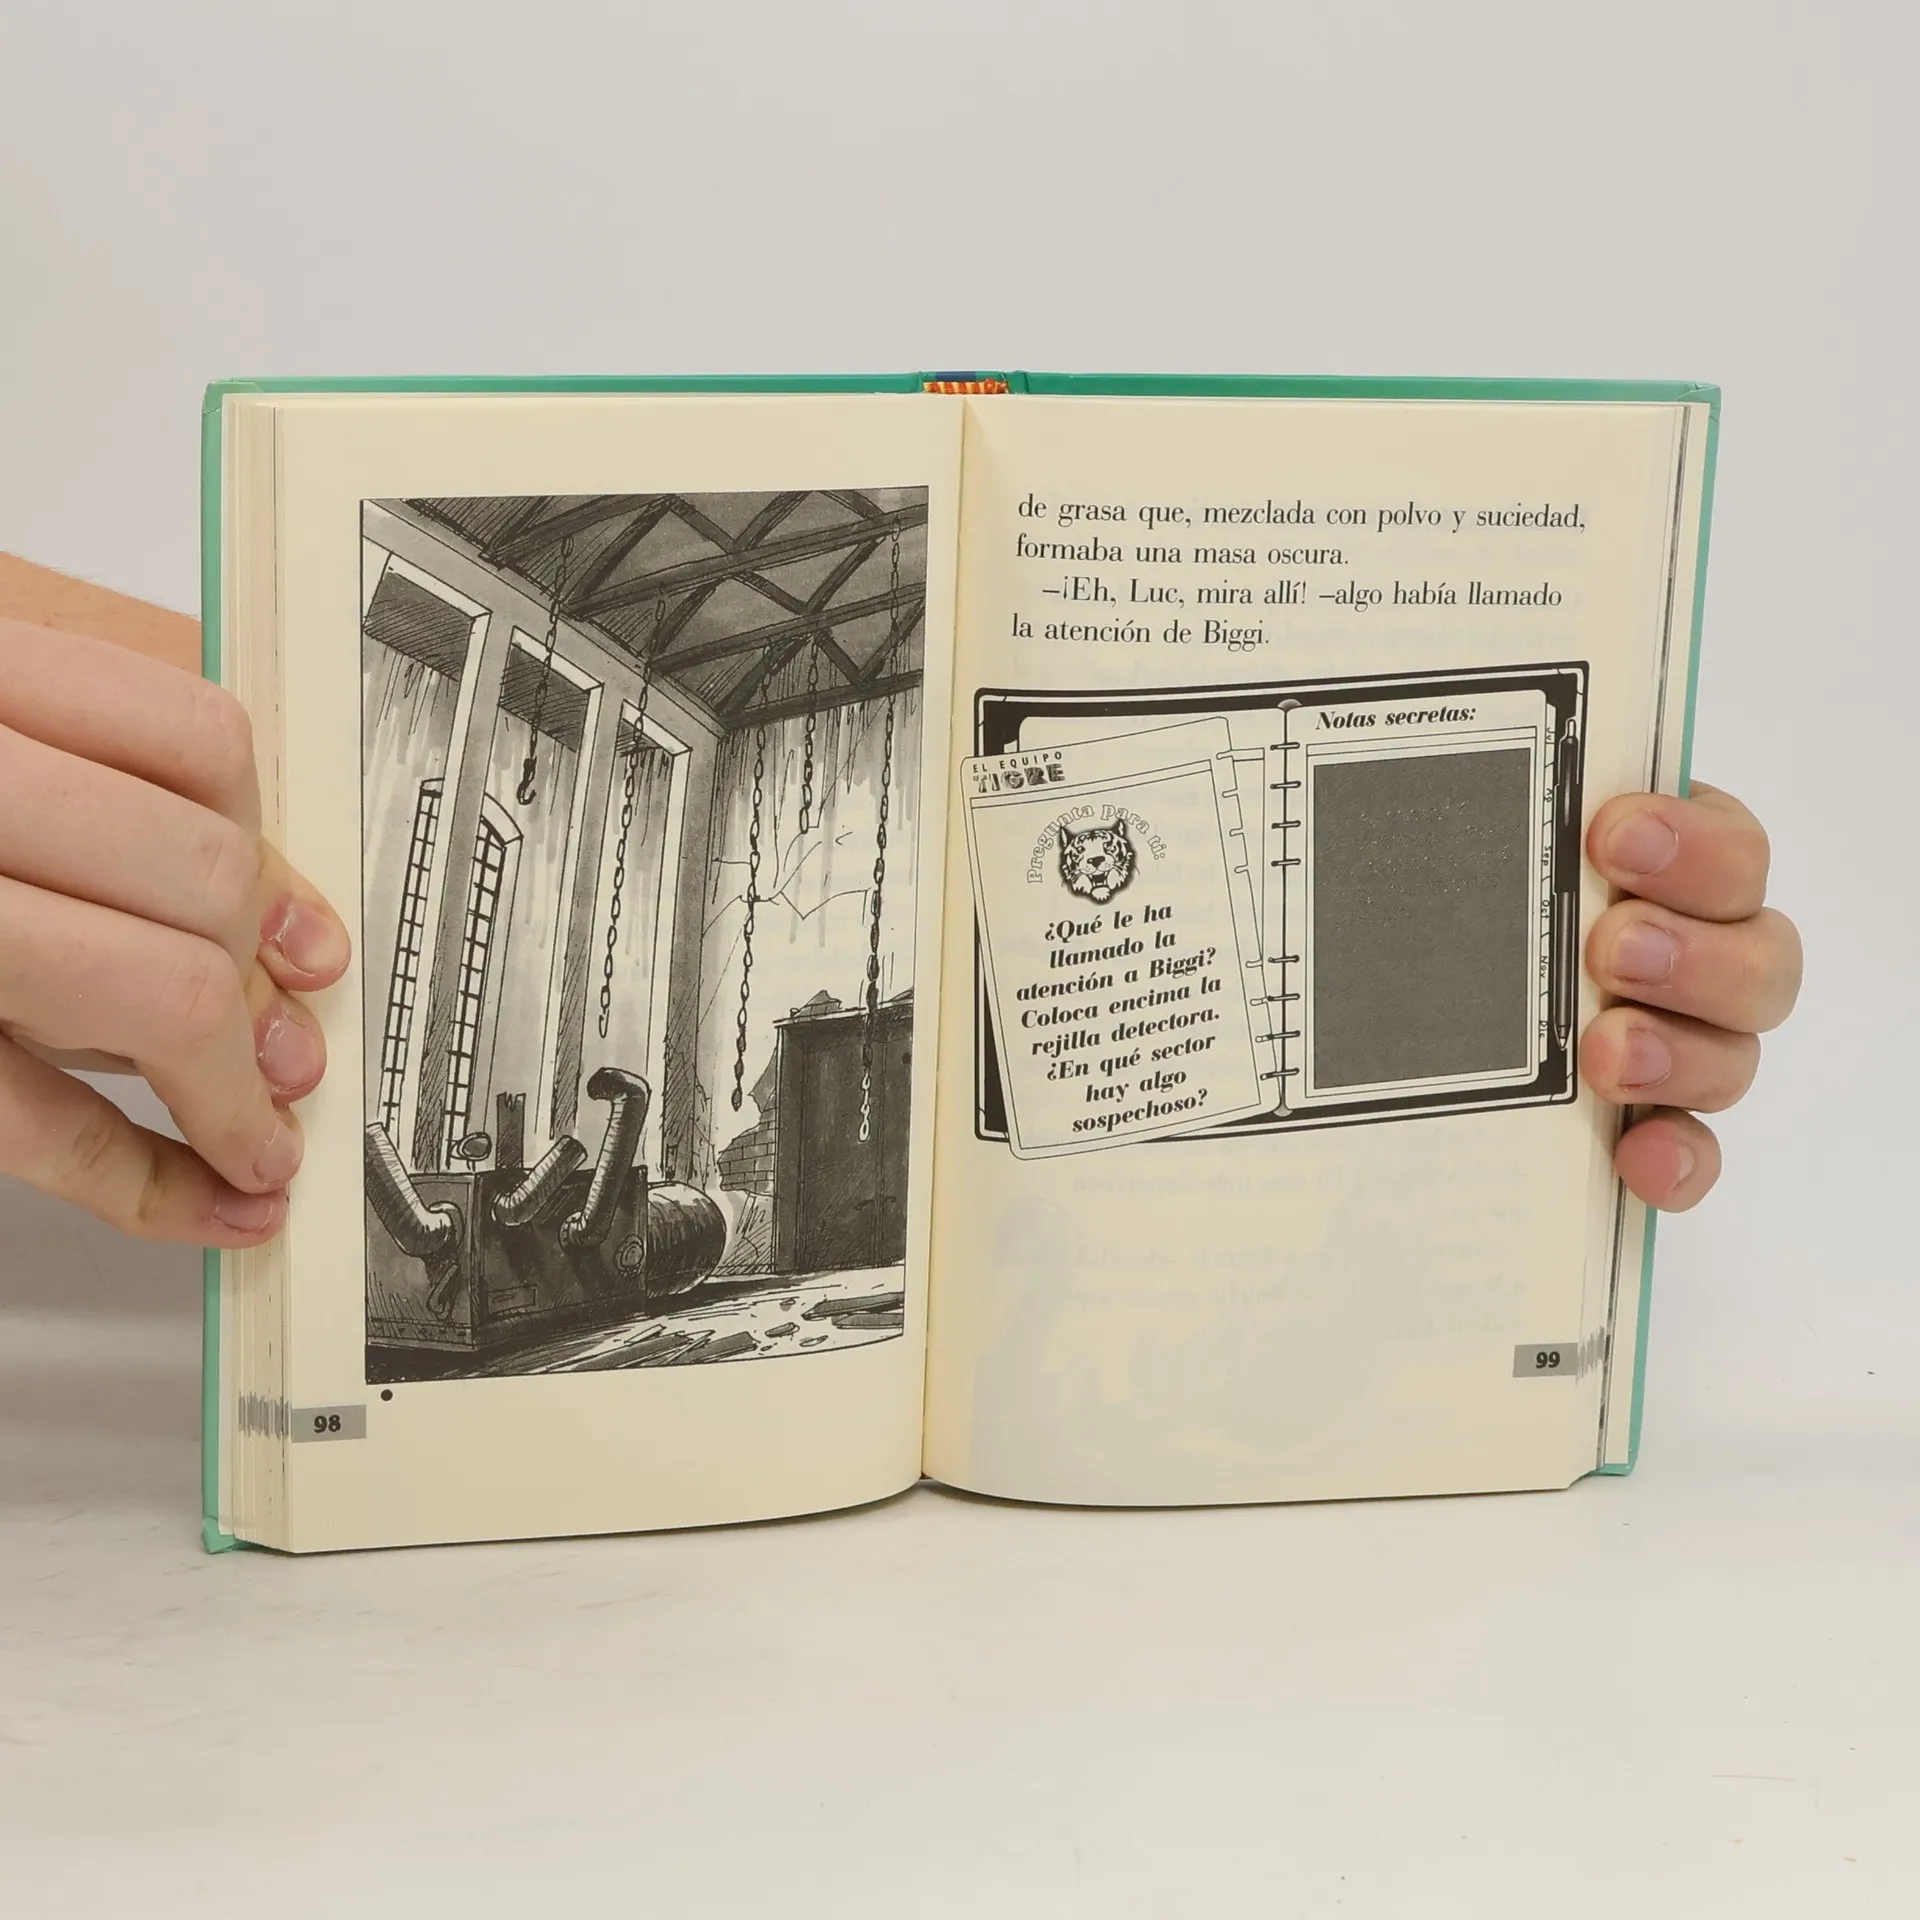 98
de grasa que, mezclada con polvo y suciedad,
formaba una masa oscura.
–¡Eh, Luc, mira allí! –algo había llamado
la atención de Biggi.
EL EQUIPO
TIGRE
Pregunta para ti:
¿Qué le ha
llamado la
atención a Biggi?
Coloca encima la
rejilla detectora.
¿En qué sector
hay algo
sospechoso?
Notas secretas:
Jul
Ag
Sep
Oct
Nov
Dic
99